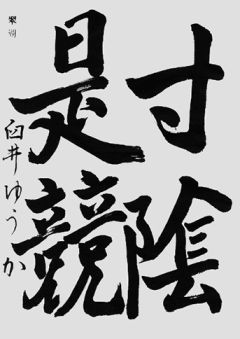 寸陰
是競
臼井ゆうか